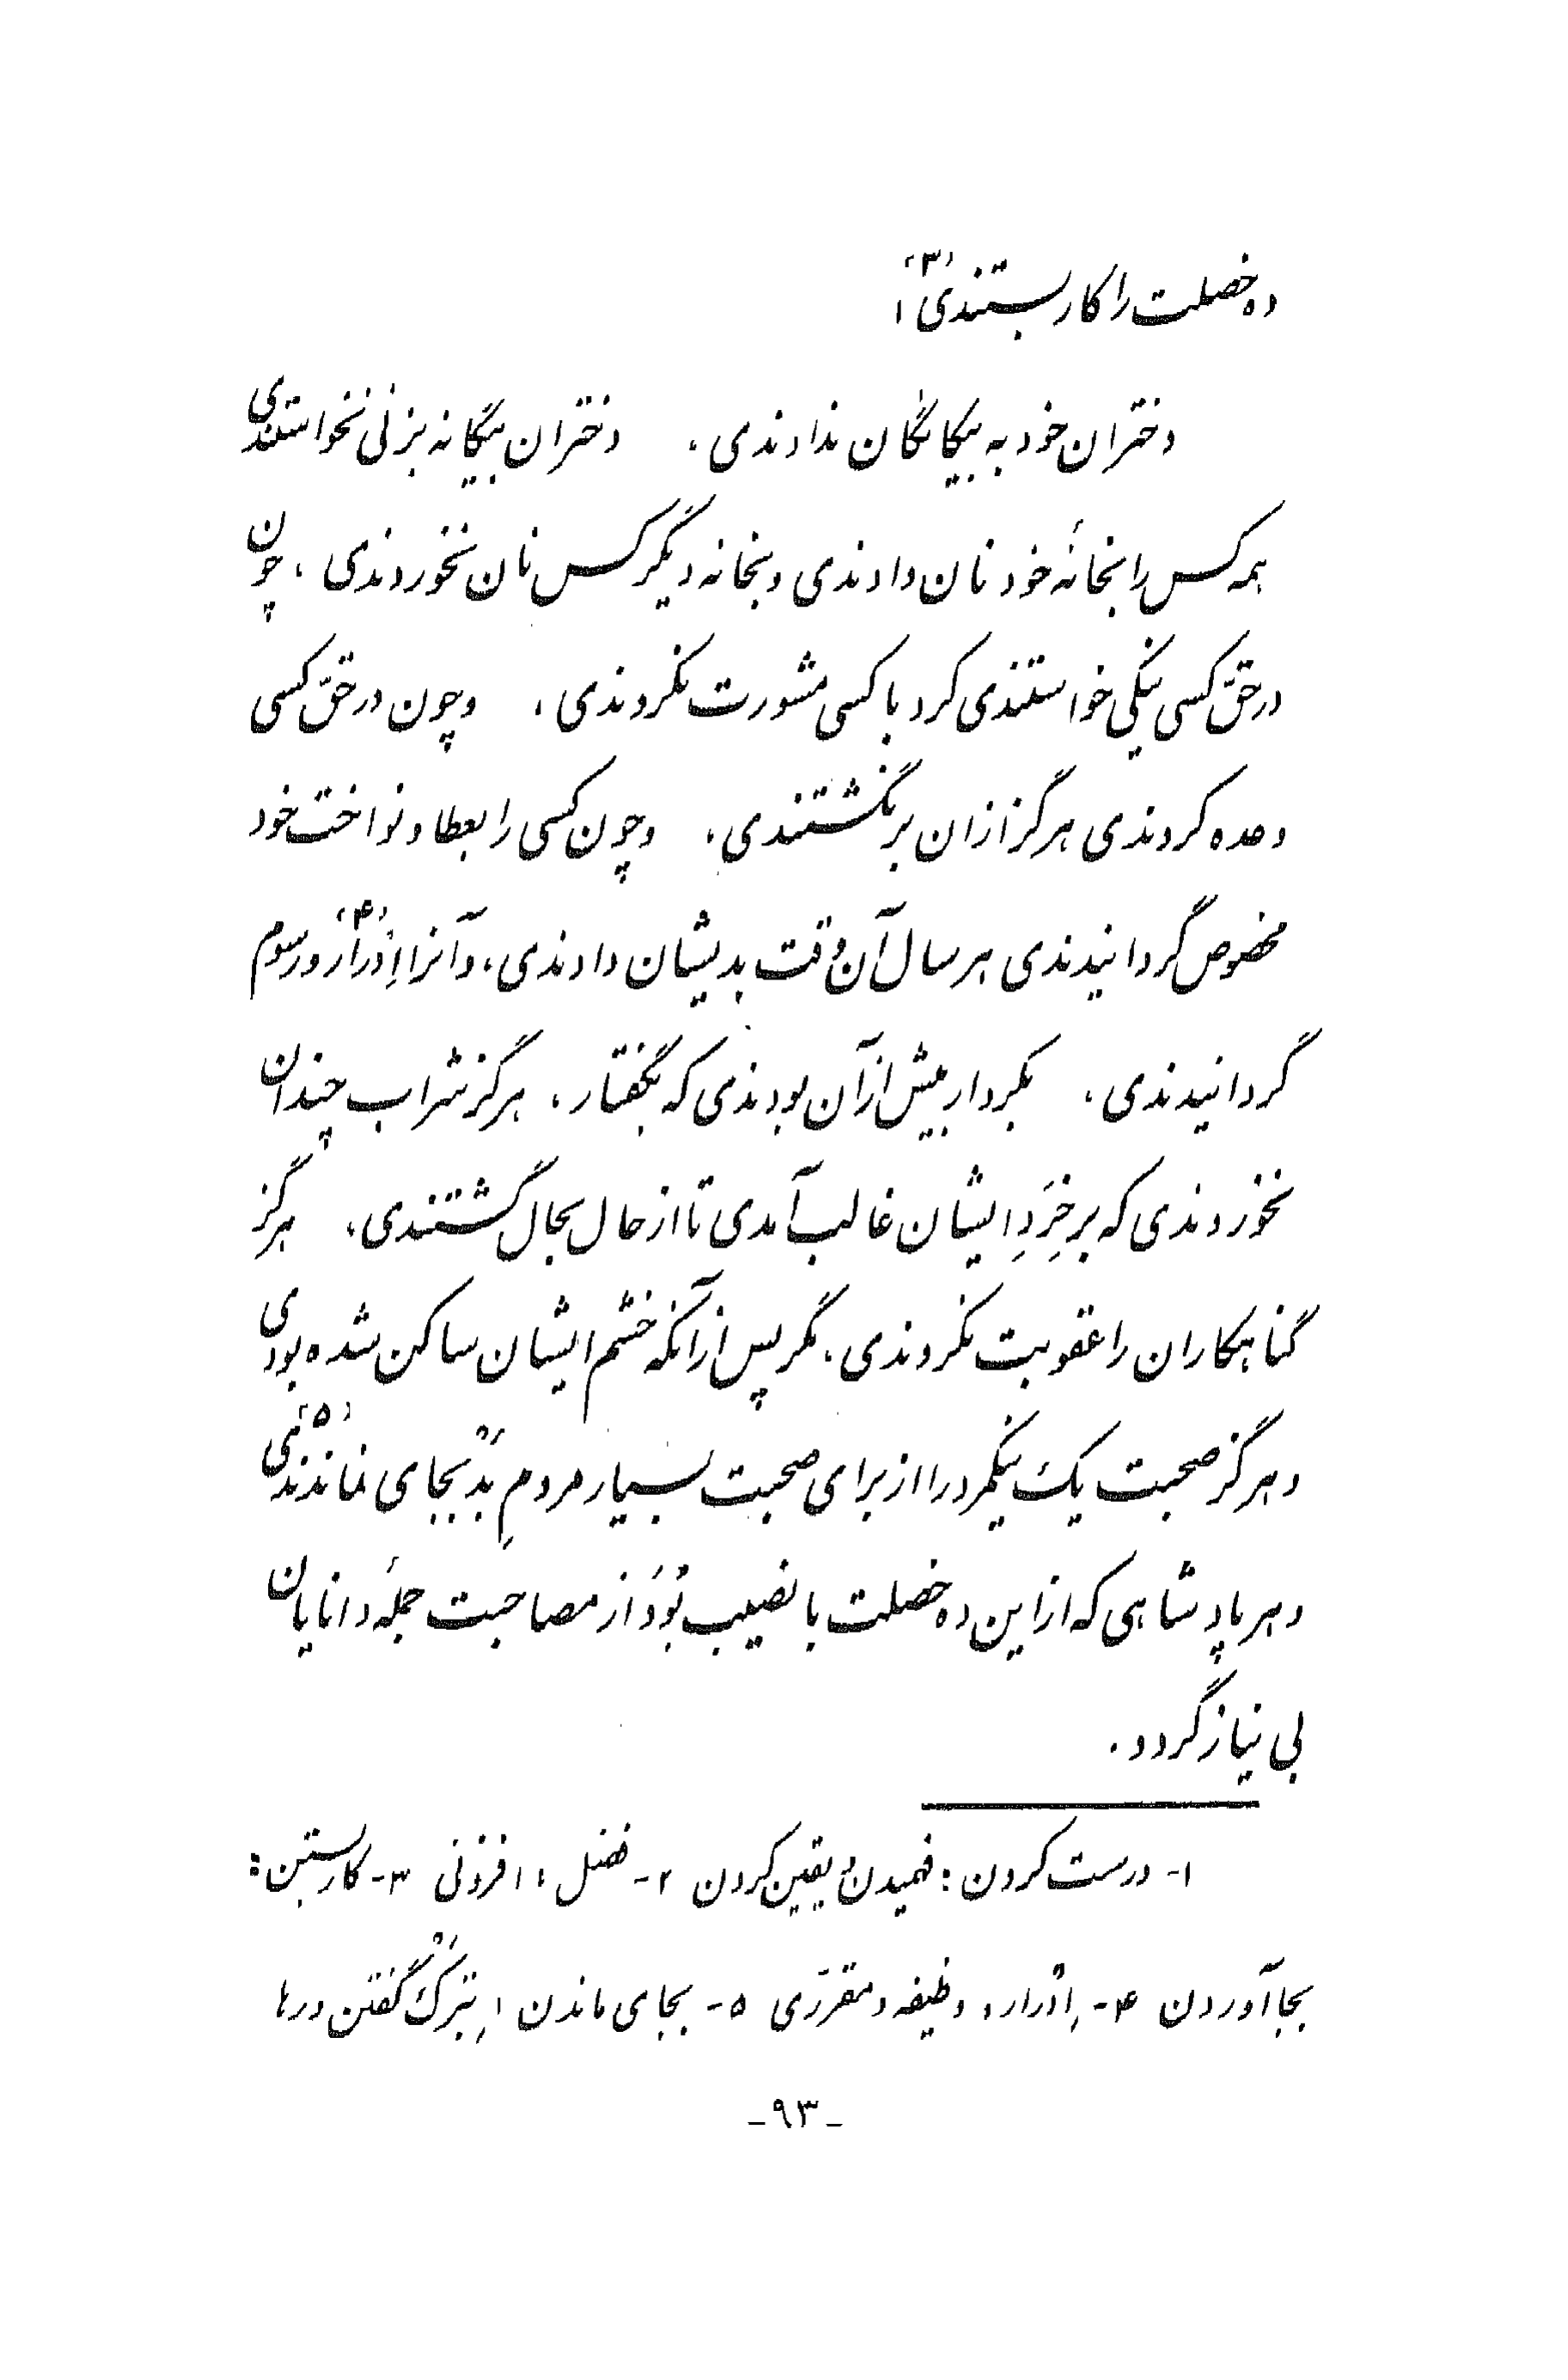 ده خصلت را کار بستندی (۳):
دختران خود به بیگانگان ندادندی، دختران بیگانه بزنی نخواستندی
همه کس را بخانهٔ خود نان دادندی و بخانه دیگر کس نان نخوردندی، چون
در حقّ کسی نیکی خواستندی کرد با کسی مشورت نکردندی، و چون در حقّ کسی
وعده کردندی هرگز ازان برنگشتندی، و چون کسی را بعطا و نواخت خود
مخصوص گردانیدندی هر سال آن وقت بدیشان دادندی، و آنرا اِدْرار (۴) و رسوم
گردانیدندی، بکردار بیش از آن بودندی که بگفتار، هرگز شراب چندان
نخوردندی که بر خِرَدِ ایشان غالب آمدی تا از حال بحال گشتندی، هرگز
گناهکاران را عقوبت نکردندی، مگر پس از آنکه خشم ایشان ساکن شده بودی
و هرگز صحبت یک نیکمرد را از برای صحبت بسیار مردمِ بَدْ بجای نماندندی (۵)
و هر پادشاهی که از این ده خصلت با نصیب بُوَدْ از مصاحبت جملهٔ دانایان
بی نیاز گردد.
۱- درست کردن: فهمیدن و یقین کردن ۲- فضل: افزونی ۳- کار بستن:
بجا آوردن ۴- اِدْرار: وظیفه و مقرّری ۵- بجای ماندن: بِتَرْک گفتن و رها
-۹۳-